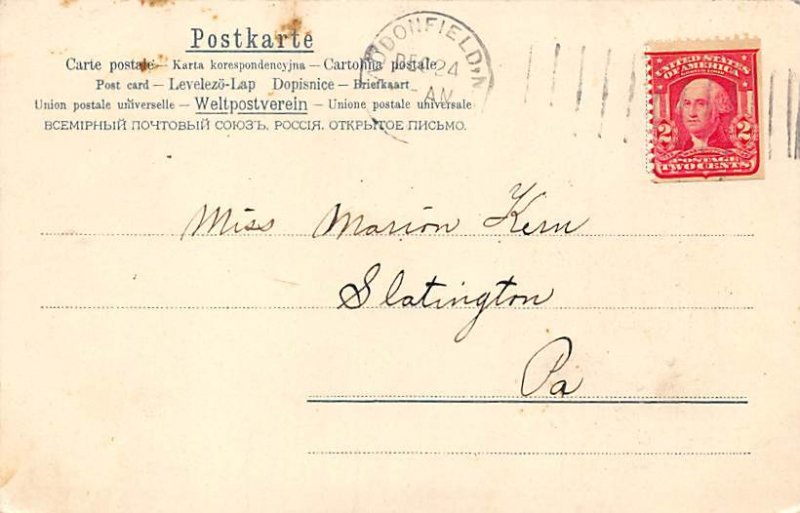 Postkarte
Carte postale – Karta korespondencyjna – Cartolina postale
Post card – Levelező-Lap Dopisnice – Briefkaart
Union postale universelle – Weltpostverein – Unione postale universale
ВСЕМІРНЫЙ ПОЧТОВЫЙ СОЮЗЪ. РОССІЯ. ОТКРЫТОЕ ПИСЬМО.
DEC 24
AM
UNITED STATES
OF AMERICA
2 2
POSTAGE
TWO CENTS
Miss Marion Kern
Slatington
Pa